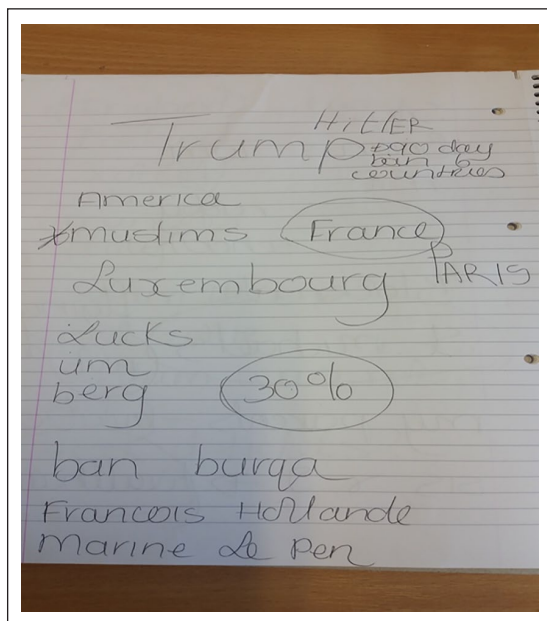 HitlER
Trump 90 day
ban 6
countries
America
muslims France
Luxembourg PARIS
Lucks
um
berg 30%
ban burqa
Francois Hollande
Marine Le Pen